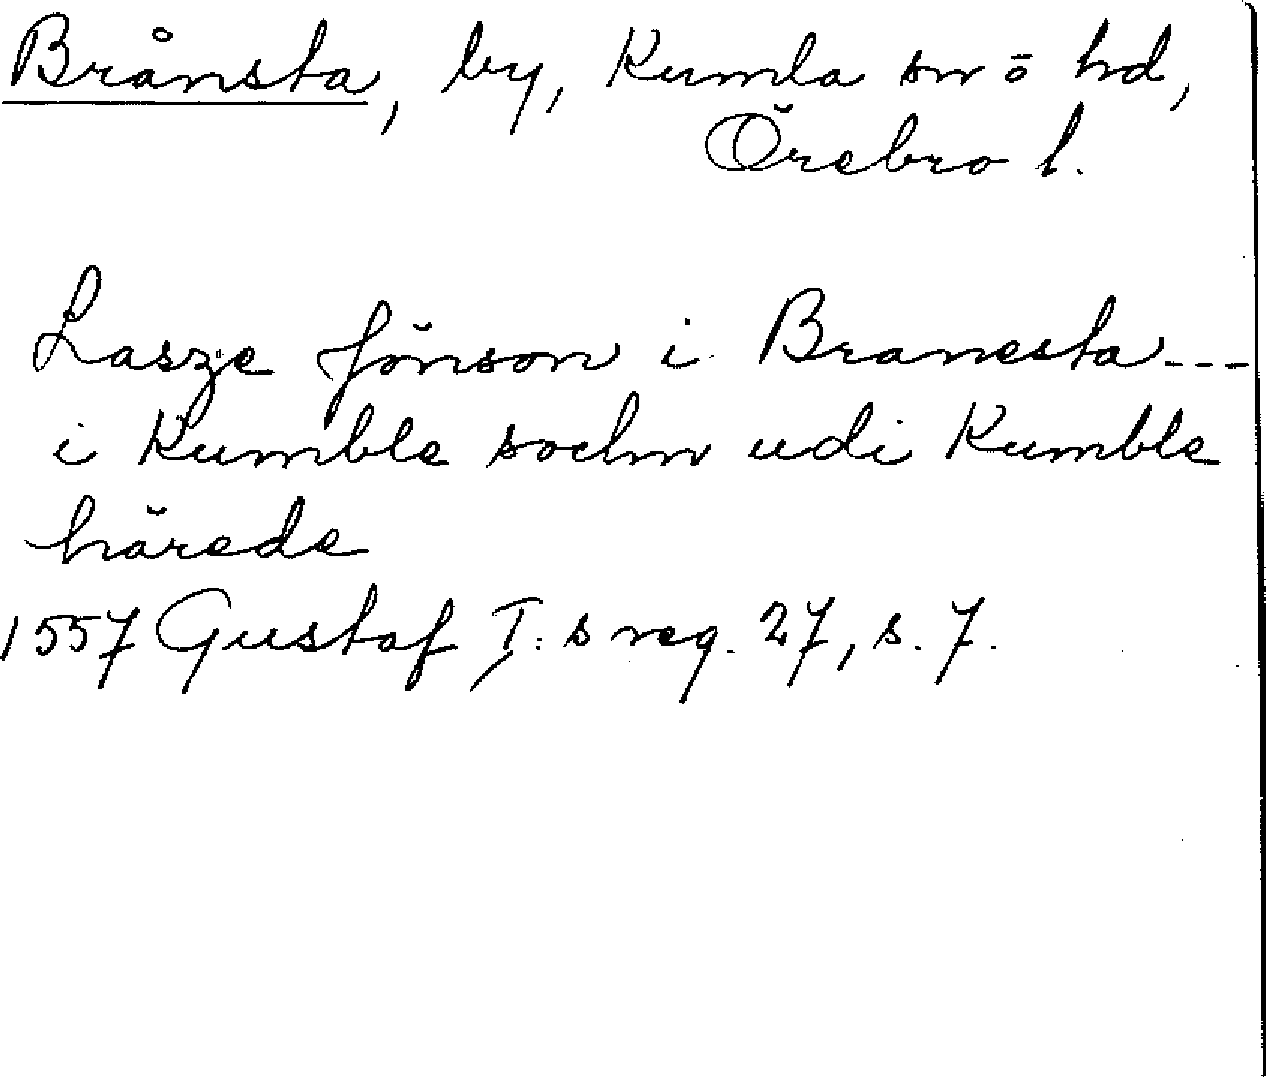 Brånsta, by, Kumla sn ö hd,
Örebro l.
Lasze Jönson i Branesta---
i Kumble sochn udi Kumble
härede
1557 Gustaf I:s reg. 27, s. 7.